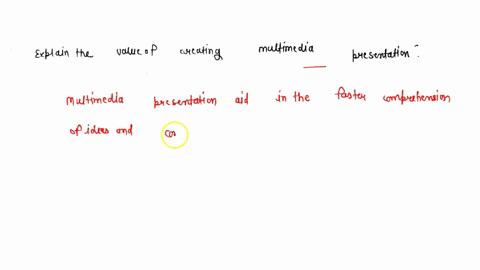 Explain the value of creating multimedia presentation:
Multimedia presentation aid in the faster comprehension
of ideas and co